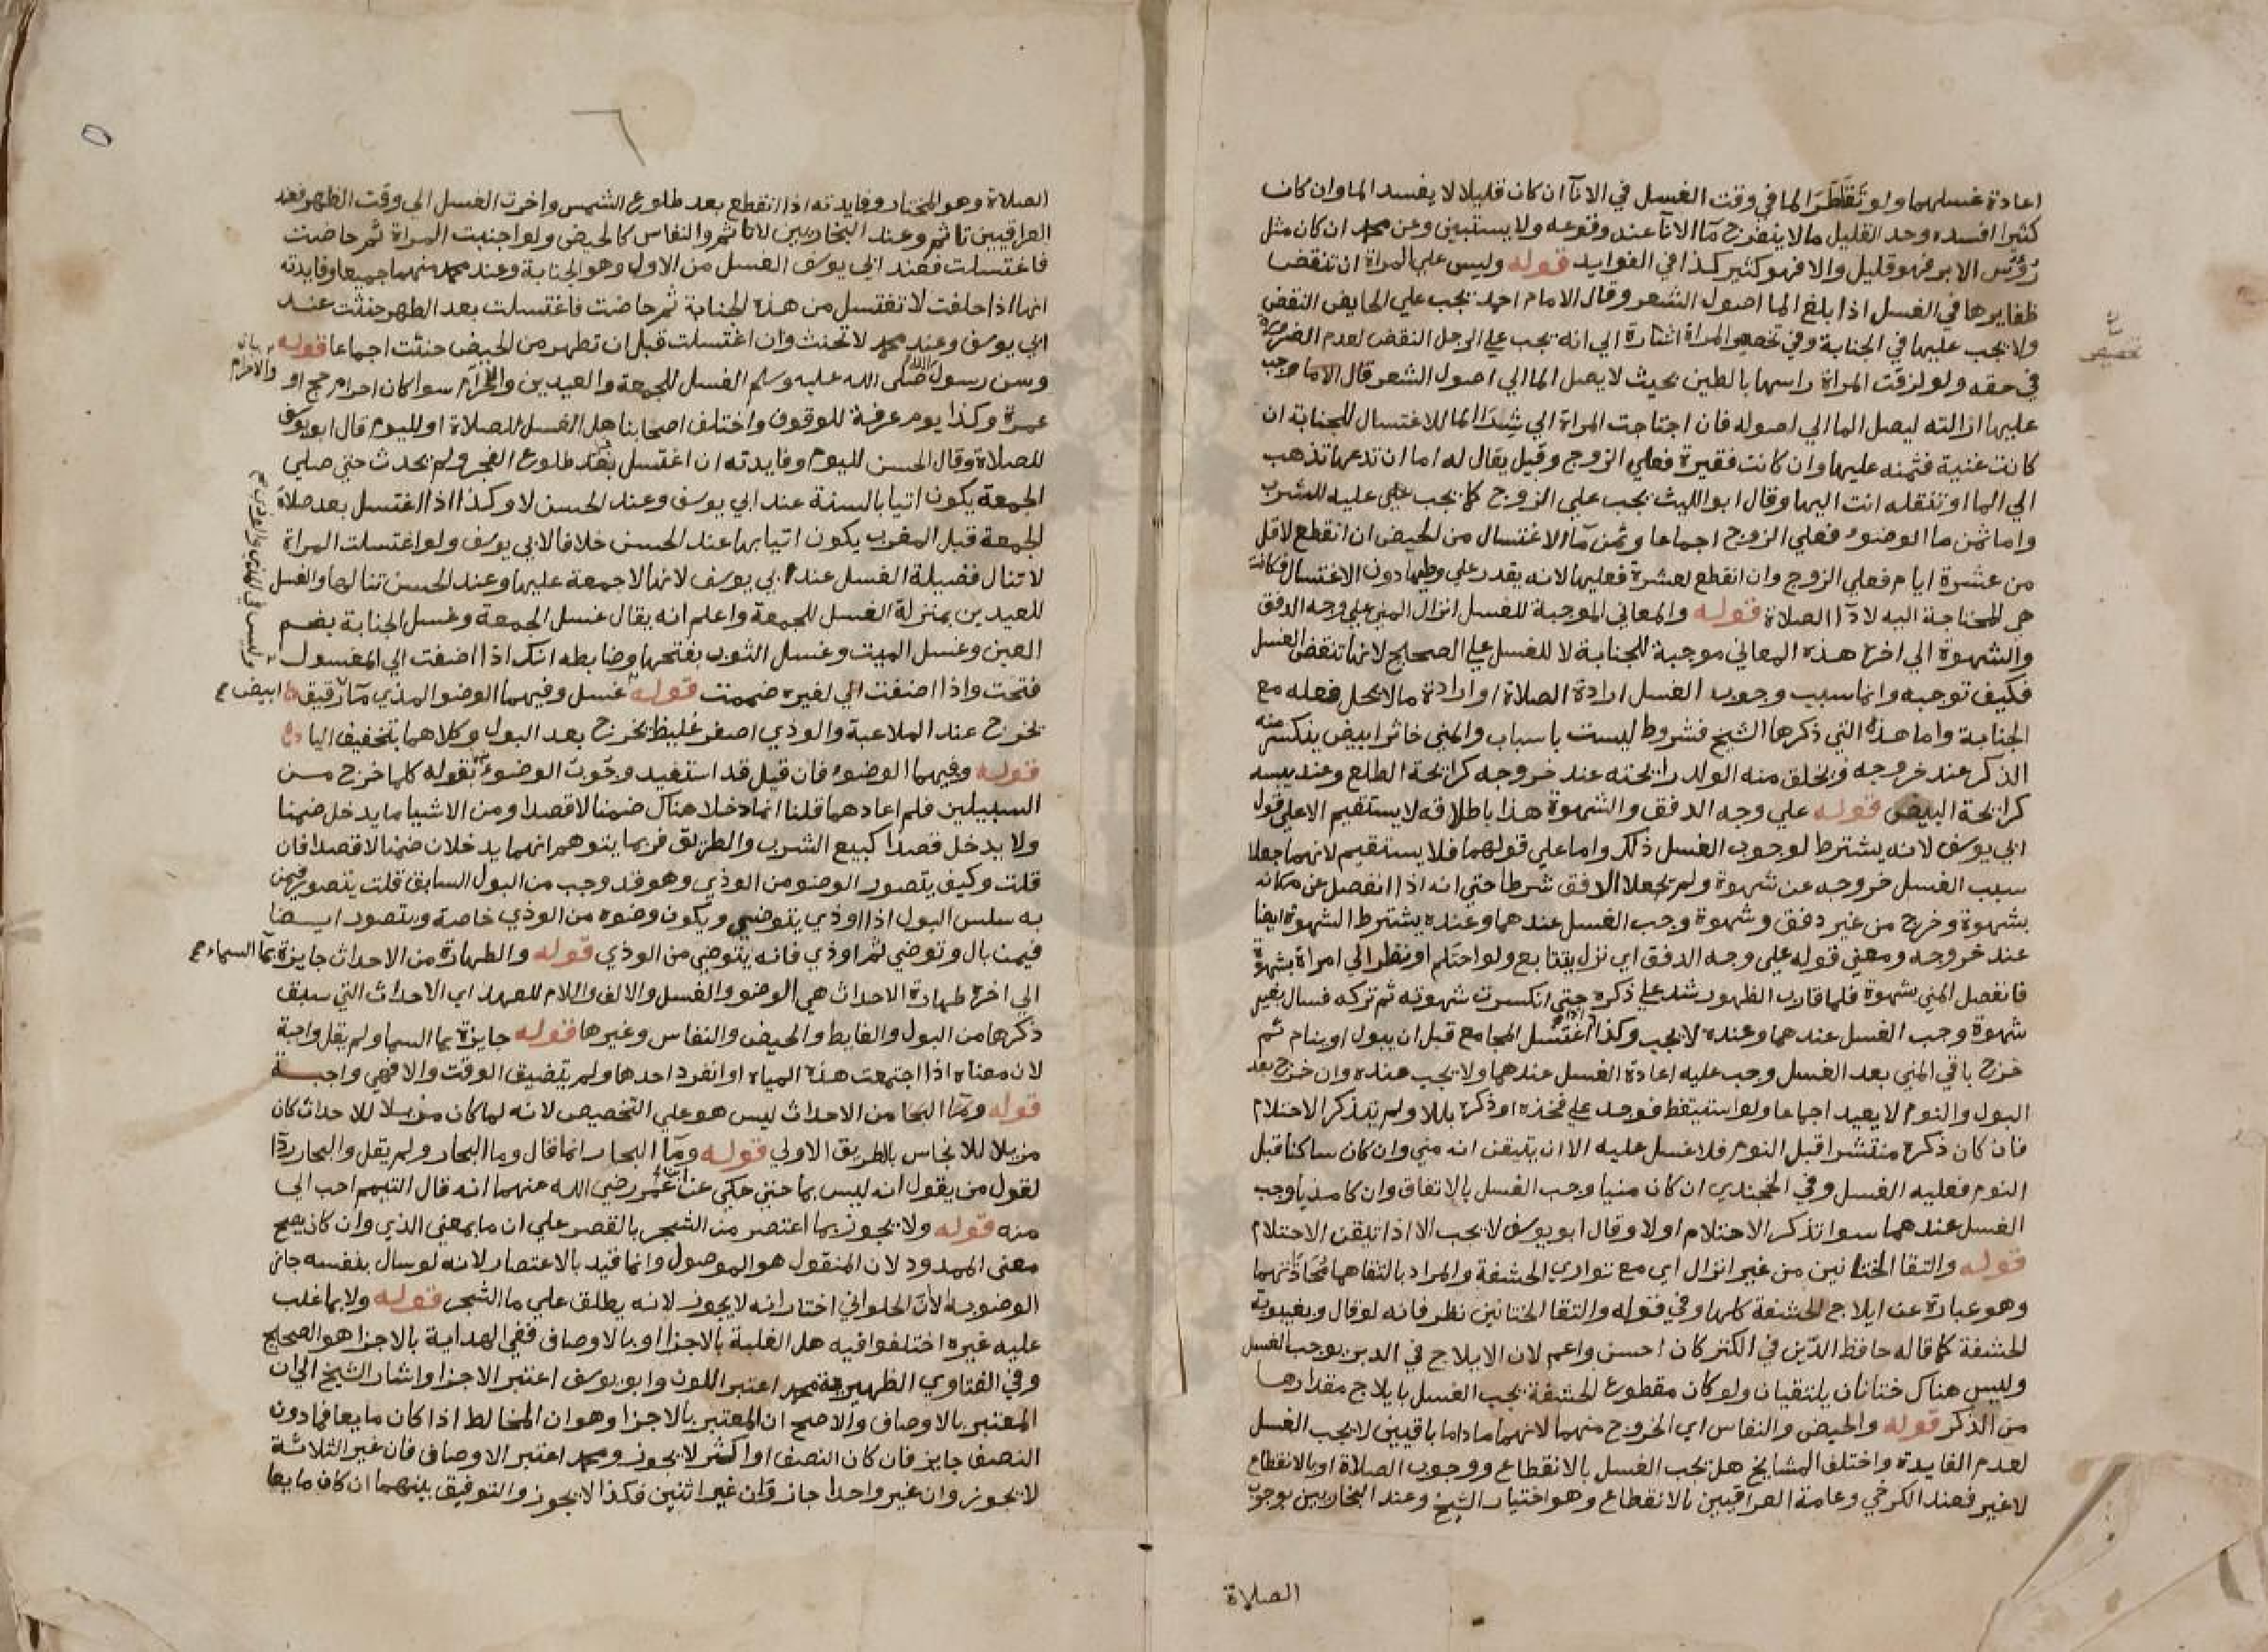 اعادة غسلهما ولو تَقَطَّرَ الما في وقت الغسل في الانآ ان كان قليلا لا يفسد الما وان كان
كثيرا افسده وحد القليل ما لا ينفرج مآ الانآ عند وقوعه ولا يستبين وعن محمد ان كان مثل
رؤس الابر فهو قليل والا فهو كثير كذا في الفوايد قوله وليس علي المراة ان تنقض
ظفايرها في الغسل اذا بلغ الما اصول الشعر وقال الامام احمد يجب علي الحايض النقض
ولا يجب عليها في الجنابة وفي تخصيص المراة اشارة الي انه يجب علي الرجل النقض لعدم الضرورة
في حقه ولو لزقت المراة راسها بالطين بحيث لا يصل الما الي اصول الشعر قال الامام وجب
عليها ازالته ليصل الما الي اصوله فان احتاجت المراة الي شرَا الما للاغتسال للجنابة ان
كانت غنية فثمنه عليها وان كانت فقيرة فعلي الزوج وقيل يقال له اما ان تدعها تذهب
الي الما او تنقله انت اليها وقال ابو الليث يجب علي الزوج كما يجب علي عليه للشرب
واما ثمن ما الوضوء فعلي الزوج اجماعا وثمن مآ الاغتسال من الحيض ان انقطع لاقل
من عشرة ايام فعلي الزوج وان انقطع لعشرة فعليها لانه يقدر علي وطيها دون الاغتسال فكانت
هي المحتاجة اليه لادآ الصلاة قوله والمعاني الموجبة للغسل انزال المني علي وجه الدفق
والشهوة الي اخره هذه المعاني موجبة للجنابة لا للغسل علي الصحيح لانها تنقض الغسل
فكيف توجبه وانما سبب وجوب الغسل ارادة الصلاة او ارادة ما لا يحل فعله مع
الجنابة واما هذه التي ذكرها الشيخ فشروط ليست باسباب والمني خاثر ابيض ينكسر منه
الذكر عند خروجه ويخلق منه الولد رايحته عند خروجه كرايحة الطلع وعند يبسه
كرايحة البيض قوله علي وجه الدفق والشهوة هذا باطلاقه لا يستقيم الا علي قول
ابي يوسف لانه يشترط لوجوب الغسل ذلك واما علي قولهما فلا يستقيم لانهما جعلا
سبب الغسل خروجه عن شهوة ولم يجعلا الدفق شرطا حتي انه اذا انفصل عن مكانه
بشهوة وخرج من غير دفق وشهوة وجب الغسل عندهما وعنده يشترط الشهوة ايضا
عند خروجه ومعني قوله علي وجه الدفق اي نزل بتتابع ولو احتلم او نظر الي امراة بشهوة
فانفصل المني بشهوة فلما قارب الظهور شد علي ذكره حتي انكسرت شهوته ثم تركه فسال بغير
شهوة وجب الغسل عندهما وعنده لا يجب وكذا اذا اغتسل المجامع قبل ان يبول او ينام ثم
خرج باقي المني بعد الغسل وجب عليه اعادة الغسل عندهما ولا يجب عنده وان خرج بعد
البول والنوم لا يعيد اجماعا ولو استيقظ فوجد علي فخذه او ذكره بللا ولم يتذكر الاحتلام
فان كان ذكره منتشرا قبل النوم فلا غسل عليه الا ان يتيقن انه مني وان كان ساكنا قبل
النوم فعليه الغسل وفي الخجندي ان كان منيا وجب الغسل بالاتفاق وان كا مذيا وجب
الغسل عندهما سوا تذكر الاحتلام اولا وقال ابو يوسف لا يجب الا اذا تيقن الاحتلام
قوله والتقا الختانين من غير انزال اي مع تواري الحشفة والمراد بالتقاهما مُحَاذَتهما
وهو عبارة عن ايلاج الحشفة كلها وفي قوله والتقا الختانين نظر فانه لو قال وبغيبوبة
الحشفة كما قاله حافظ الدّين في الكنز كان احسن واعم لان الايلاج في الدبر يوجب الغسل
وليس هناك ختانان يلتقيان ولو كان مقطوع الحشفة يجب الغسل بايلاج مقدارها
من الذكر قوله والحيض والنفاس اي الخروج منهما لانهما ماداما باقيين لا يجب الغسل
لعدم الفايدة واختلف المشايخ هل يجب الغسل بالانقطاع ووجوب الصلاة او بالانقطاع
لا غير فعند الكرخي وعامة العراقيين بالانقطاع وهو اختيار الشيخ وعند البخاريين بوجوب
الصلاة
الصلاة وهو المختار وفايدته اذا انقطع بعد طلوع الشمس واخرت الغسل الي وقت الظهر فعند
العراقيين تاثم وعند البخاريين لا تاثم والنفاس كالحيض ولو اجنبت المراة ثم حاضت
فاغتسلت فعند ابي يوسف الغسل من الاول وهو الجنابة وعند محمد منهما جميعا وفايدته
انها اذا حلفت لا تغتسل من هذه الجنابة ثم حاضت فاغتسلت بعد الطهر حنثت عند
ابي يوسف وعند محمد لا تحنث وان اغتسلت قبل ان تطهر من الحيض حنثت اجماعا قوله
وسن رسول الله صلى الله عليه وسلم الغسل للجمعة والعيدين والاحرام سوا كان احرام حج او
عمرة وكذا يوم عرفة للوقوف واختلف اصحابنا هل الغسل للصلاة او لليوم قال ابو يوسف
للصلاة وقال الحسن لليوم وفايدته ان اغتسل بعد طلوع الفجر ولم يحدث حتي صلي
الجمعة يكون اتيا بالسنة عند ابي يوسف وعند الحسن لا وكذا اذا اغتسل بعد صلاة
الجمعة قبل المغرب يكون اتيا بها عند الحسن خلافا لابي يوسف ولو اغتسلت المراة
لا تنال فضيلة الغسل عند ابي يوسف لانها لا جمعة عليها وعند الحسن تنالها والغسل
للعيدين بمنزلة الغسل للجمعة واعلم انه يقال غسل الجمعة وغسل الجنابة بضم
الغين وغسل الميت وغسل الثوب بفتحها وضابطه انك اذا اضفت الي المغسول
فتحت واذا اضفت الي لغيره ضممت قوله غسل وفيهما الوضو المذي مآ رقيق ابيض
يخرج عند الملاعبة والوذي اصفر غليظ يخرج بعد البول وكلاهما بتخفيف اليا
قوله وفيهما الوضوء فان قيل قد استفيد وجوب الوضوء بقوله كلما خرج من
السبيلين فلم اعادهما قلنا انما دخلا هناك ضمنا لا قصدا ومن الاشيا ما يدخل ضمنا
ولا يدخل قصدا كبيع الشرب والطريق فربما يتوهم انهما يدخلان ضمنا لا قصدا فان
قلت وكيف يتصور الوضو من الوذي وهو قد وجب من البول السابق قلت يتصور فيمن
به سلس البول اذا اوذي يتوضي ويكون وضوه من الوذي خاصة ويتصور ايضا
فيمن بال وتوضي ثم اوذي فانه يتوضي من الوذي قوله والطهارة من الاحداث جايزة بمآ السماء
الي اخره طهارة الاحداث هي الوضو والغسل والالف واللام للعهد اي الاحداث التي سبق
ذكرها من البول والغايط والحيض والنفاس وغيرها قوله جايزة بما السما ولم يقل واجبة
لان معناه اذا اجتمعت هذه المياه او انفرد احدها ولم يتضيق الوقت والا فهي واجبة
قوله ومآ البحا من الاحداث ليس هو علي التخصيص لانه لما كان مزيلا للاحداث كان
مزيلا للانجاس بالطريق الاولي قوله ومآ البحار انما قال وما البحار ولم يقل والبحار ردّا
لقول من يقول انه ليس بما حتي حكي عن ابن عمر رضي الله عنهما انه قال التيمم احب الي
منه قوله ولا يجوز بما اعتصر من الشجر بالقصر علي ان ما بمعني الذي وان كان يصح
معني الممدود لان المنقول هو الموصول وانما قيد بالاعتصار لانه لو سال بنفسه جاز
الوضو به الا ان الحلواني اختار انه لا يجوز لانه يطلق علي ما الشجر قوله ولا بما غلب
عليه غيره اختلفوا فيه هل الغلبة بالاجزا او بالاوصاف ففي الهداية بالاجزا هو الصحيح
وفي الفتاوي الظهيرية محمد اعتبر اللون وابو يوسف اعتبر الاجزا واشار الشيخ الي ان
المعتبر بالاوصاف والاصح ان المعتبر بالاجزا وهو ان المخالط اذا كان مايعا فما دون
النصف جايز فان كان النصف او اكثر لا يجوز ومحمد اعتبر الاوصاف فان غير الثلاثة
لا يجوز وان غير واحدا جاز وان غير اثنين فكذا لا يجوز والتوفيق بينهما ان كان مايعا